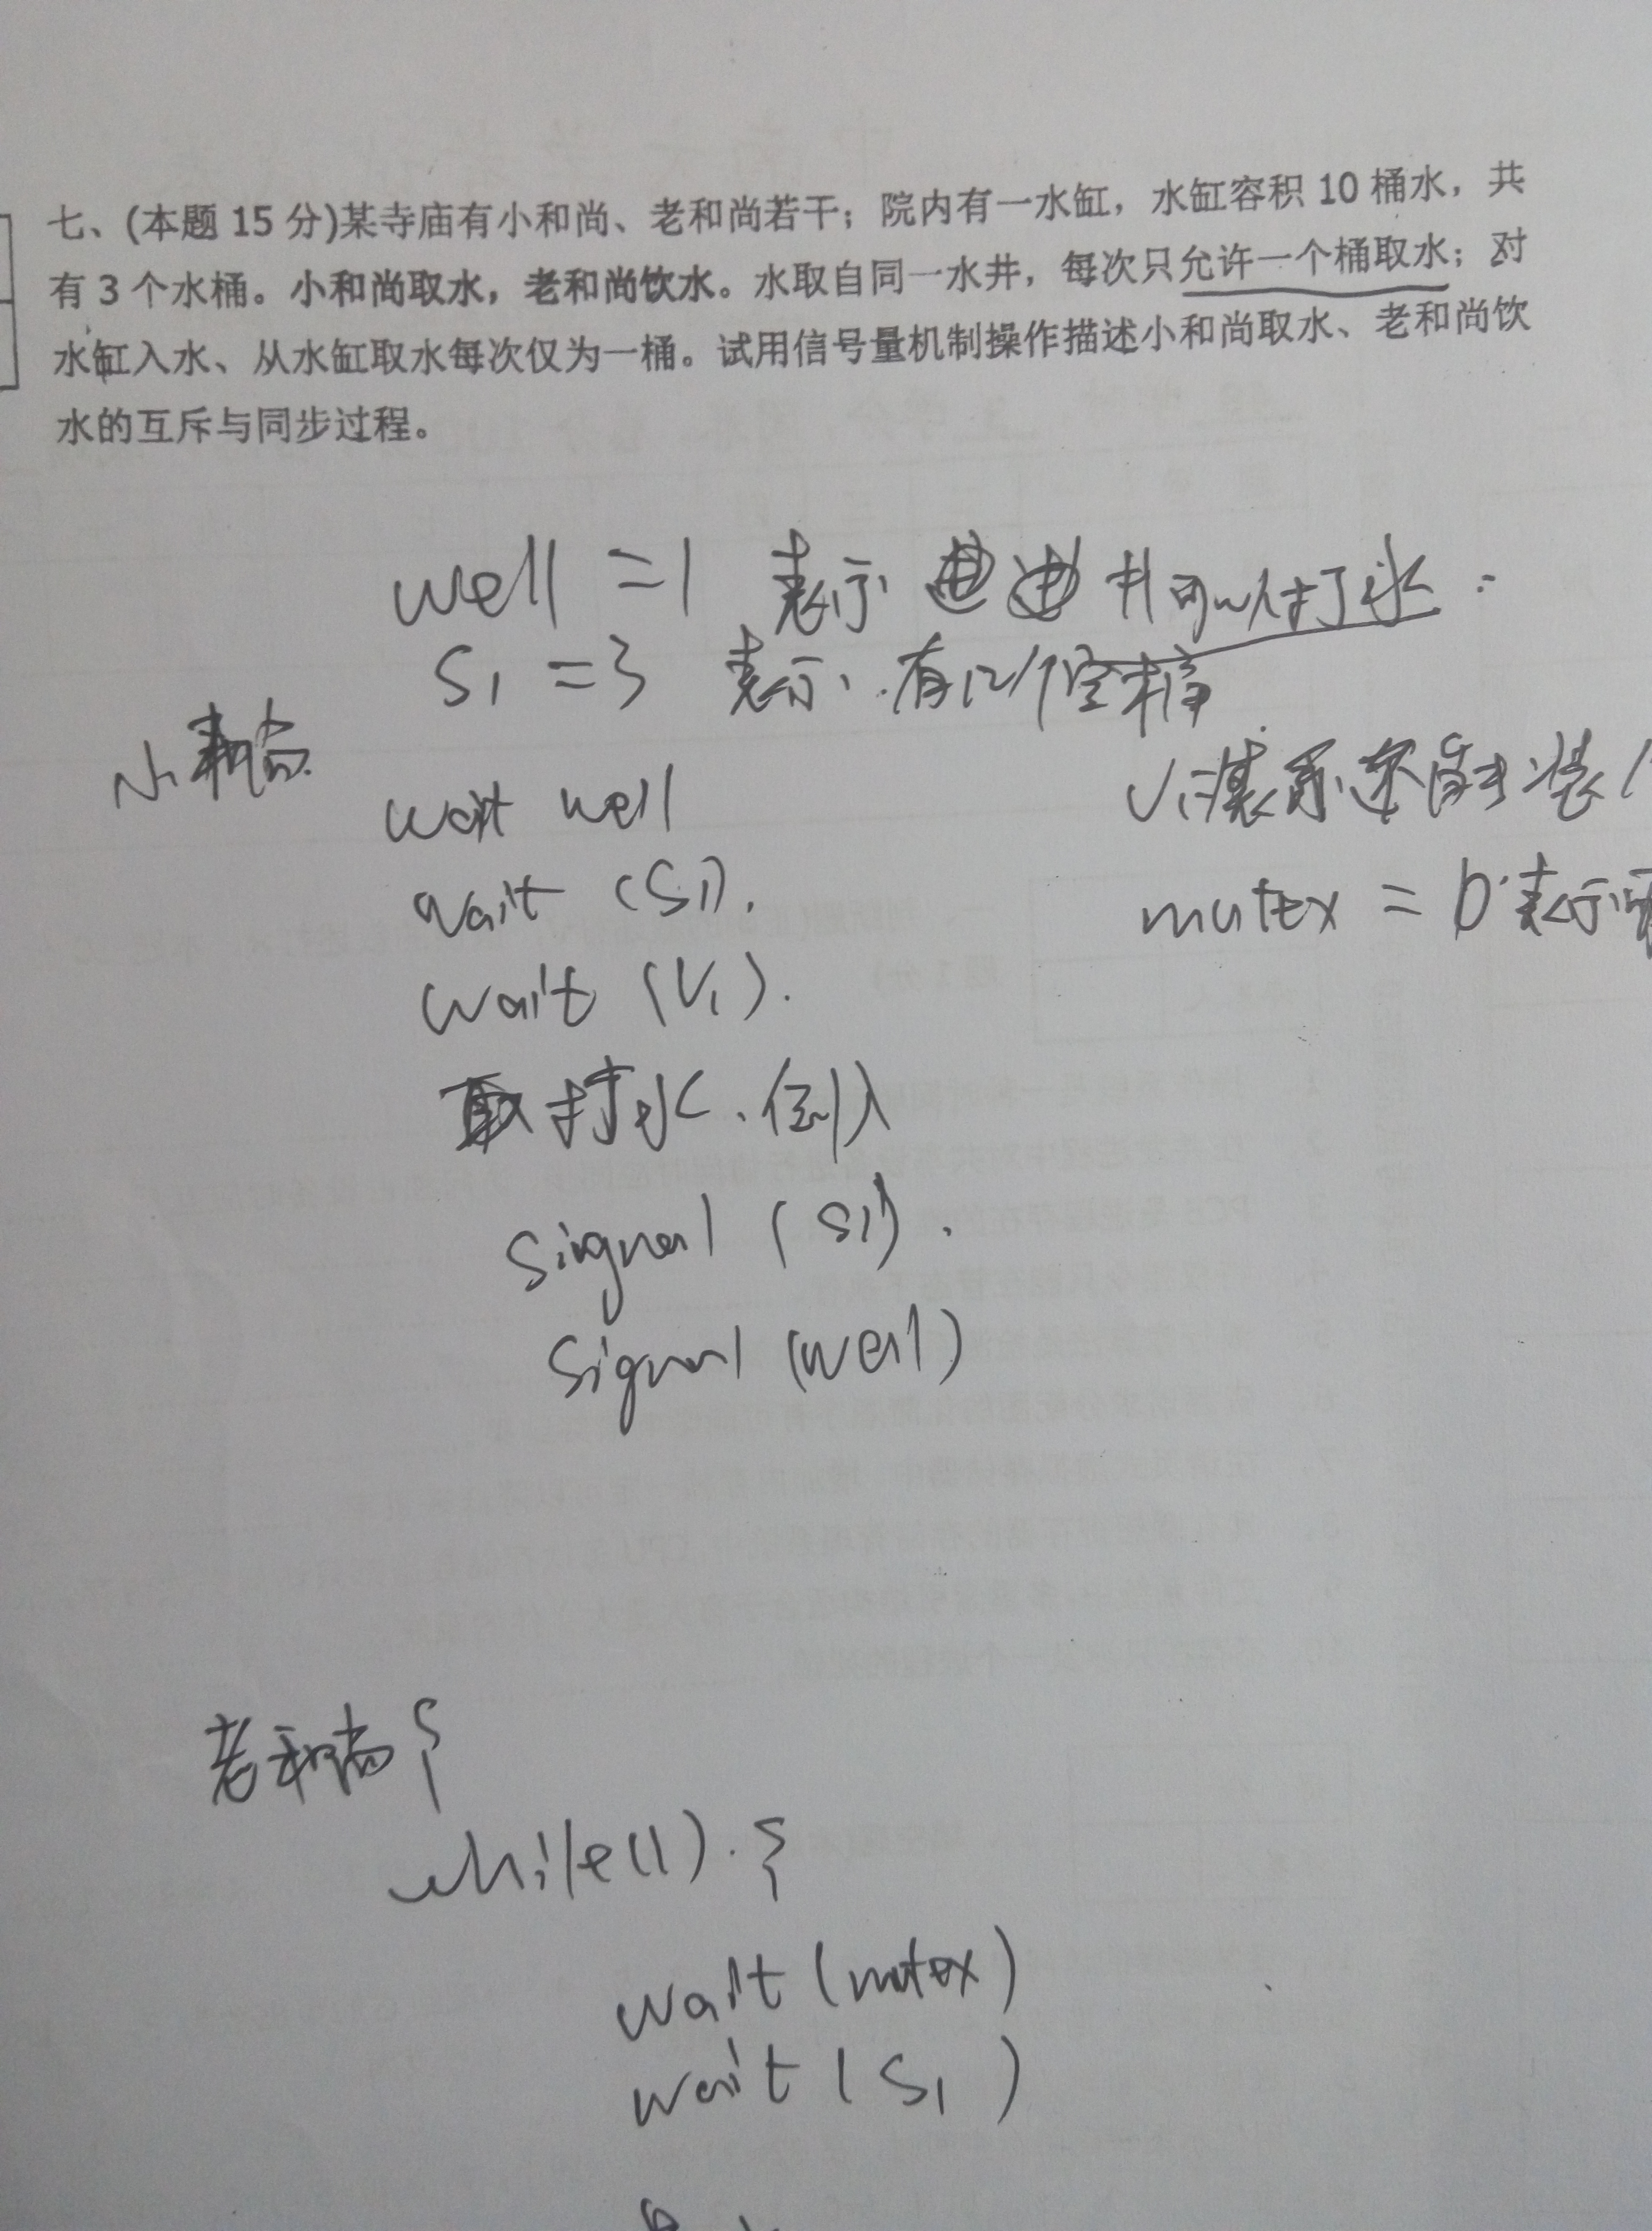 七、(本题 15 分)某寺庙有小和尚、老和尚若干；院内有一水缸，水缸容积 10 桶水，共
有 3 个水桶。小和尚取水，老和尚饮水。水取自同一水井，每次只允许一个桶取水；对
水缸入水、从水缸取水每次仅为一桶。试用信号量机制操作描述小和尚取水、老和尚饮
水的互斥与同步过程。
well =1 表示 井可以打水
S1 =3 表示 有几个空桶
小和尚
wait well
V1 表示还能装
wait (S1).
mutex = 0 表示
wait (V1).
取打水、倒入
signal (S1).
signal (well)
老和尚{
while(1).{
wait (mutex)
wait (S1)